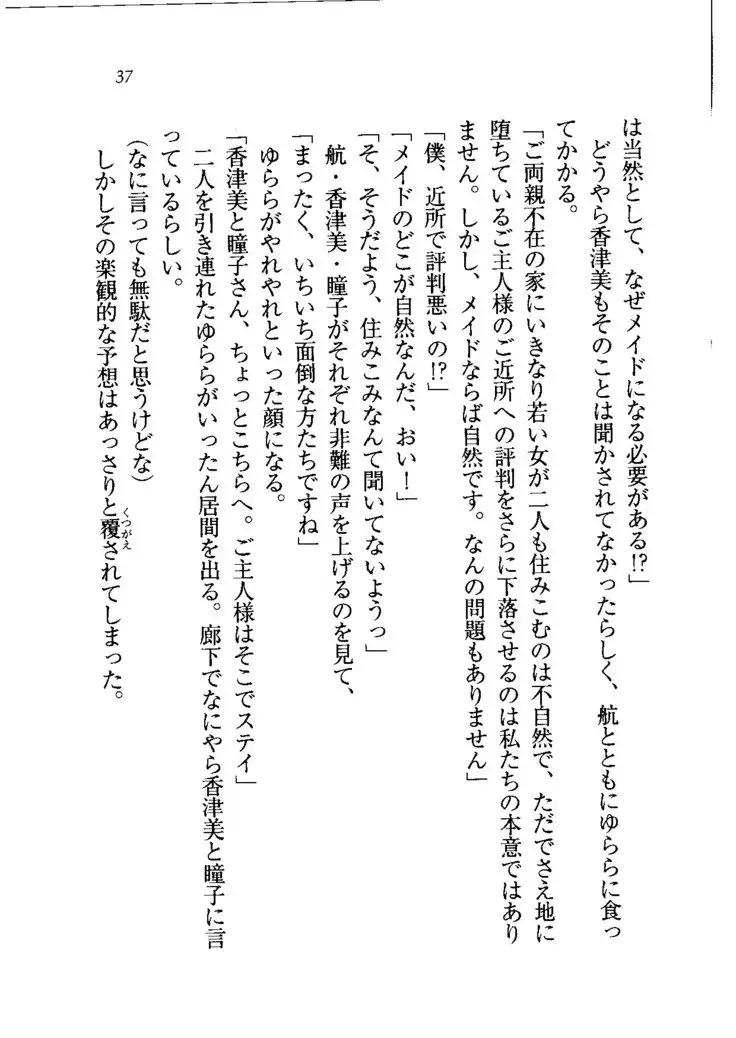 37
は当然として、なぜメイドになる必要がある!?」
どうやら香津美もそのことは聞かされてなかったらしく、航とともにゆららに食っ
てかかる。
「ご両親不在の家にいきなり若い女が二人も住みこむのは不自然で、ただでさえ地に
堕ちているご主人様のご近所への評判をさらに下落させるのは私たちの本意ではあり
ません。しかし、メイドならば自然です。なんの問題もありません」
「僕、近所で評判悪いの!?」
「メイドのどこが自然なんだ、おい！」
「そ、そうだよう、住みこみなんて聞いてないようっ」
航・香津美・瞳子がそれぞれ非難の声を上げるのを見て、
「まったく、いちいち面倒な方たちですね」
ゆららがやれやれといった顔になる。
「香津美と瞳子さん、ちょっとこちらへ。ご主人様はそこでステイ」
二人を引き連れたゆららがいったん居間を出る。廊下でなにやら香津美と瞳子に言
っているらしい。
（なに言っても無駄だと思うけどな）
しかしその楽観的な予想はあっさりと覆されてしまった。
くつがえ